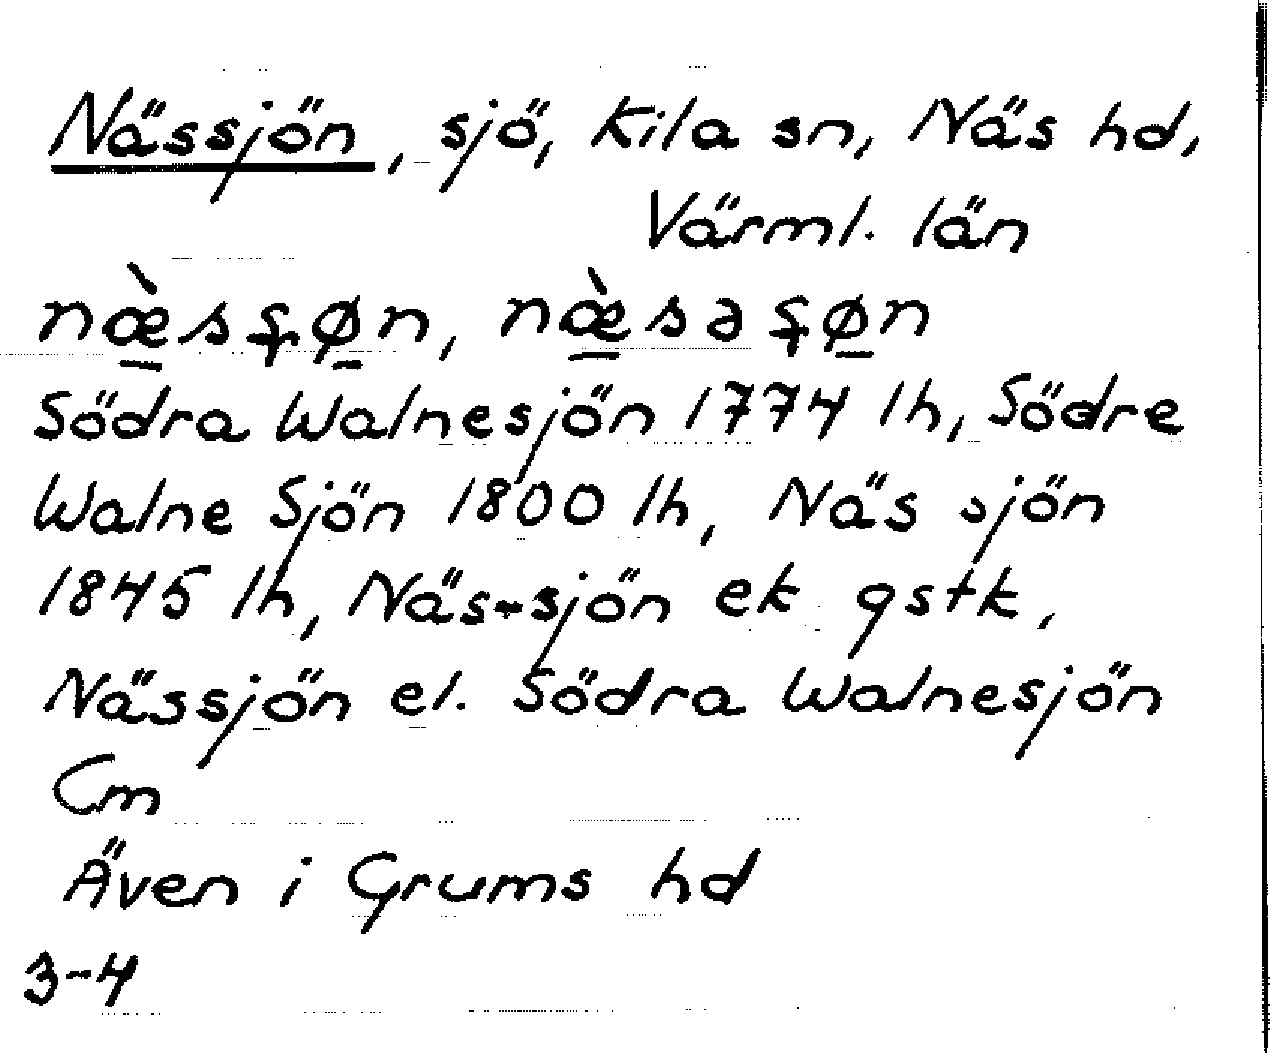 Nässjön, sjö, Kila sn, Näs hd,
Värml. län
næ̱̀sʂø̱n, næ̱̀səʂø̱n
Södra Walnesjön 1774 lh, Södre
Walne Sjön 1800 lh, Näs sjön
1845 lh, Näs-sjön ek gstk,
Nässjön el. Södra Walnesjön
Cm
Även i Grums hd
3-4